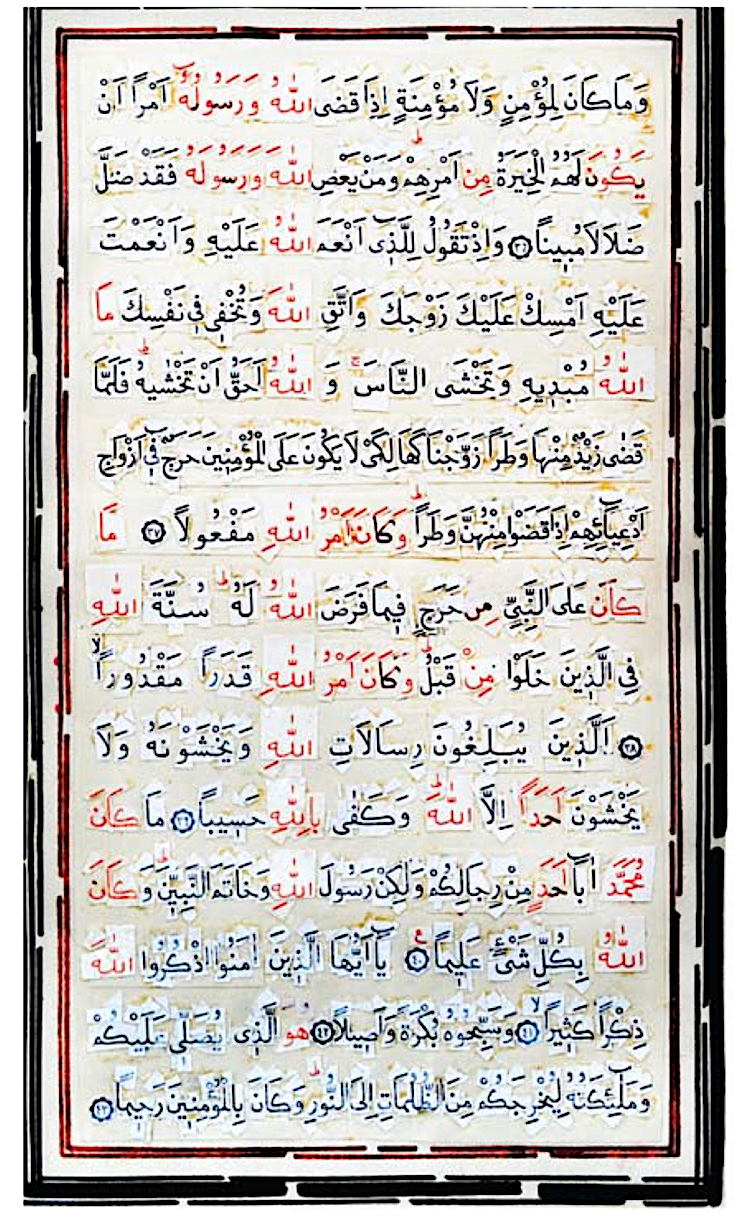 وَمَا كَانَ لِمُؤْمِنٍ وَلَا مُؤْمِنَةٍ اِذَا قَضَى اللّٰهُ وَرَسُولُهُٓ اَمْراً اَنْ
يَكُونَ لَهُمُ الْخِيَرَةُ مِنْ اَمْرِهِمْ وَمَنْ يَعْصِ اللّٰهَ وَرَسُولَهُ فَقَدْ ضَلَّ
ضَلَالاً مُبٖيناً ﴿٣٦﴾ وَاِذْ تَقُولُ لِلَّذٖٓى اَنْعَمَ اللّٰهُ عَلَيْهِ وَاَنْعَمْتَ
عَلَيْهِ اَمْسِكْ عَلَيْكَ زَوْجَكَ وَاتَّقِ اللّٰهَ وَتُخْفٖى فٖى نَفْسِكَ مَا
اللّٰهُ مُبْدٖيهِ وَتَخْشَى النَّاسَ وَ اللّٰهُ اَحَقُّ اَنْ تَخْشٰيهُ فَلَمَّا
قَضٰى زَيْدٌ مِنْهَا وَطَراً زَوَّجْنَاكَهَا لِكَىْ لَا يَكُونَ عَلَى الْمُؤْمِنٖينَ حَرَجٌ فٖٓى اَزْوَاجِ
اَدْعِيَٓائِهِمْ اِذَا قَضَوْا مِنْهُنَّ وَطَراً وَكَانَ اَمْرُ اللّٰهِ مَفْعُولاً ﴿٣٧﴾ مَا
كَانَ عَلَى النَّبِىِّ مِنْ حَرَجٍ فٖيمَا فَرَضَ اللّٰهُ لَهُ سُنَّةَ اللّٰهِ
فِى الَّذٖينَ خَلَوْا مِنْ قَبْلُ وَكَانَ اَمْرُ اللّٰهِ قَدَراً مَقْدُوراًۙ
﴿٣٨﴾ اَلَّذٖينَ يُبَلِّغُونَ رِسَالَاتِ اللّٰهِ وَيَخْشَوْنَهُ وَلَا
يَخْشَوْنَ اَحَداً اِلَّا اللّٰهَ وَكَفٰى بِاللّٰهِ حَسٖيباً ﴿٣٩﴾ مَا كَانَ
مُحَمَّدٌ اَبَٓا اَحَدٍ مِنْ رِجَالِكُمْ وَلٰكِنْ رَسُولَ اللّٰهِ وَخَاتَمَ النَّبِيّٖنَ وَكَانَ
اللّٰهُ بِكُلِّ شَىْءٍ عَلٖيماً ﴿٤٠﴾ يَٓا اَيُّهَا الَّذٖينَ اٰمَنُوا اذْكُرُوا اللّٰهَ
ذِكْراً كَثٖيراًۙ ﴿٤١﴾ وَسَبِّحُوهُ بُكْرَةً وَاَصٖيلاً ﴿٤٢﴾ هُوَ الَّذٖى يُصَلّٖى عَلَيْكُمْ
وَمَلٰٓئِكَتُهُ لِيُخْرِجَكُمْ مِنَ الظُّلُمَاتِ اِلَى النُّورِ وَكَانَ بِالْمُؤْمِنٖينَ رَحٖيماً ﴿٤٣﴾